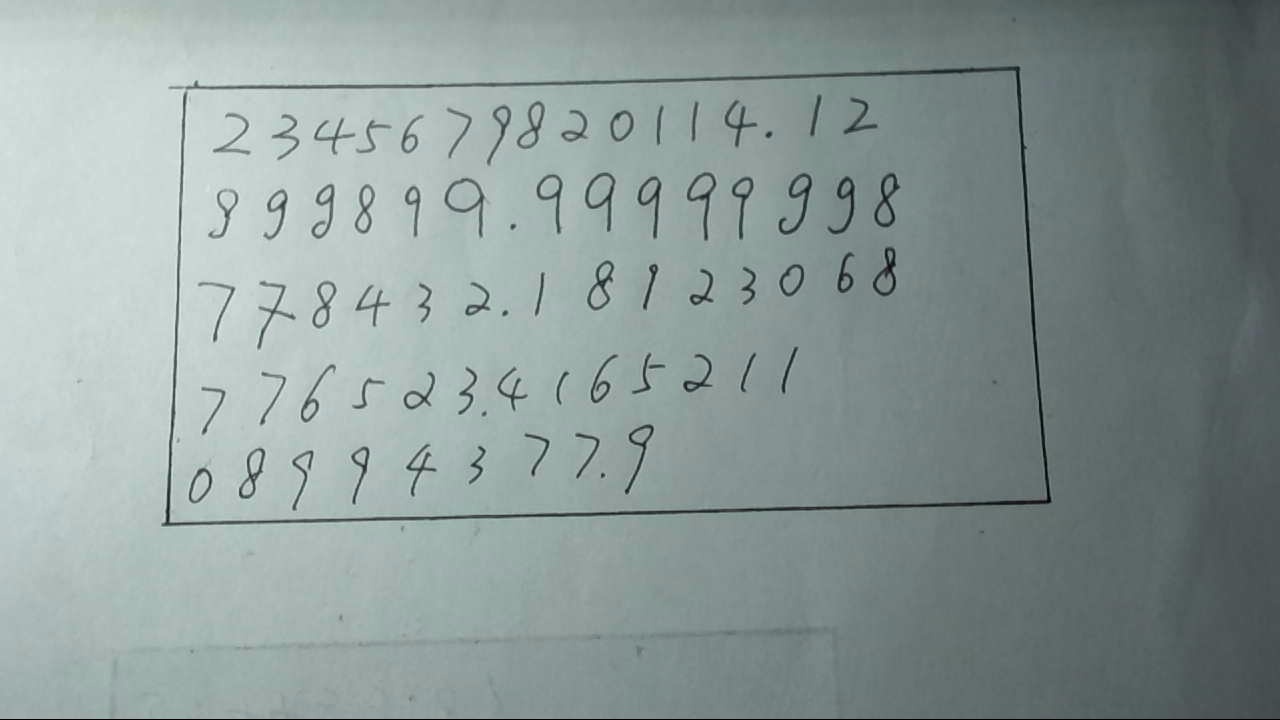 2345679820114.12
999899.999999998
778432.18123068
776523.4165211
08994377.9